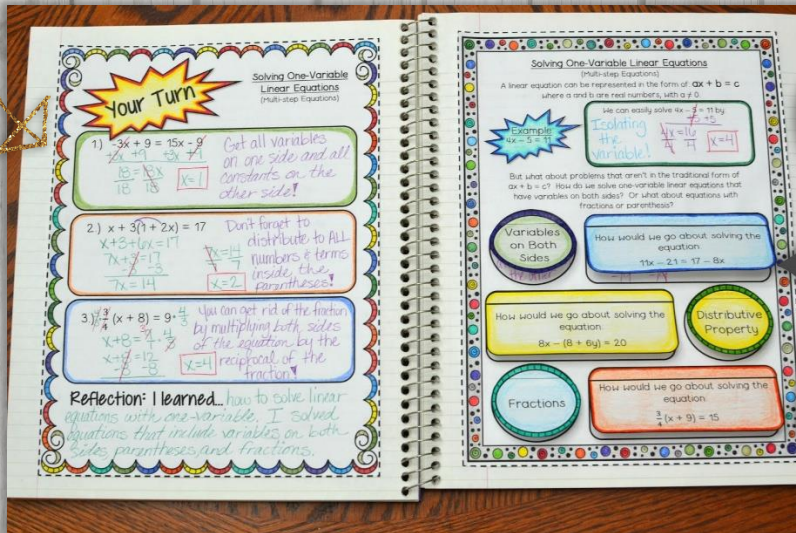 Your Turn
Solving One-Variable
Linear Equations
(Multi-step Equations)
1) -3x + 9 = 15x - 9
+3x +9 +3x +9
18 = 18x
18 18
x=1
Get all variables
on one side and all
constants on the
other side!
2.) x + 3(1 + 2x) = 17
x+3+6x=17
7x+3=17
-3 -3
7x = 14
7x=14
7 7
x=2
Don't forget to
distribute to ALL
numbers & terms
inside the
parentheses!
3.) 4/3 · 3/4 (x + 8) = 9 · 4/3
x+8=
x+8=12
-8 -8
x=4
You can get rid of the fraction
by multiplying both sides
of the equation by the
reciprocal of the
fraction!
Reflection: I learned... how to solve linear
equations with one-variable. I solved
equations that include variables on both
sides, parentheses, and fractions.
Solving One-Variable Linear Equations
(Multi-step Equations)
A linear equation can be represented in the form of ax + b = c
where a and b are real numbers, with a ≠ 0.
Example
4x - 5 = 11
We can easily solve 4x - 5 = 11 by
+5 +5
Isolating
the
variable!
4x = 16
4 4
x=4
But what about problems that aren't in the traditional form of
ax + b = c? How do we solve one-variable linear equations that
have variables on both sides? Or what about equations with
fractions or parenthesis?
Variables
on Both
Sides
How would we go about solving the
equation:
11x - 21 = 17 - 8x
How would we go about solving the
equation:
8x - (8 + 6y) = 20
Distributive
Property
Fractions
How would we go about solving the
equation:
3/4 (x + 9) = 15